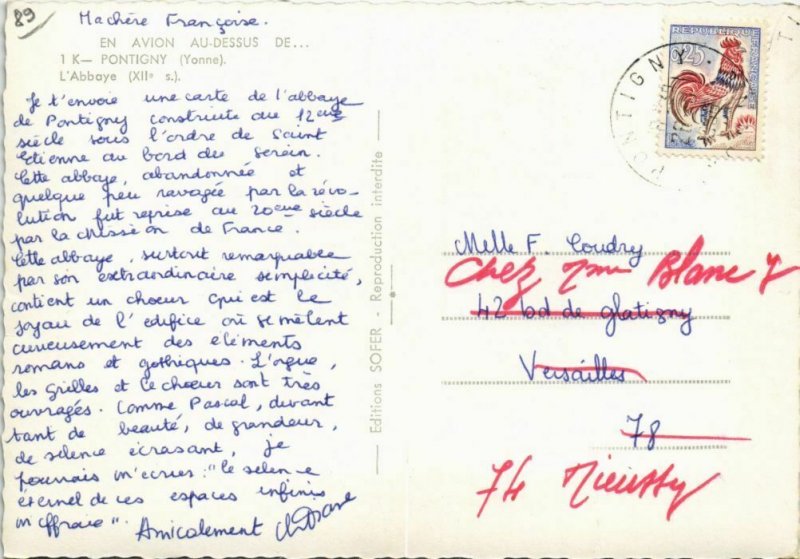 89
Machère Françoise.
EN AVION AU-DESSUS DE...
1 K— PONTIGNY (Yonne).
L'Abbaye (XIIe s.).
Je t'envoie une carte de l'abbaye
de Pontigny construite au 12ème
siècle sous l'ordre de Saint
Etienne au bord du Serein.
Cette abbaye, abandonnée et
quelque peu ravagée par la révo-
lution fut reprise au 20ème siècle
par la Mission de France.
Cette abbaye, surtout remarquable
par son extraordinaire simplicité,
contient un choeur qui est le
joyau de l'édifice où se mêlent
curieusement des éléments
romans et gothiques. L'orgue,
les grilles et le choeur sont très
ouvragés. Comme Pascal, devant
tant de beauté, de grandeur,
de silence écrasant, je
pourrais m'écrier: "le silen-e
éternel de ces espaces infinis
m'effraie".
Amicalement
Editions SOFER - Reproduction interdite
REPUBLIQUE FRANÇAISE
0,25
PONTIGNY
Melle F. Coudry
Chez Mme Blanc Y
42 bd de glatigny
Versailles
78
74 Mieussy